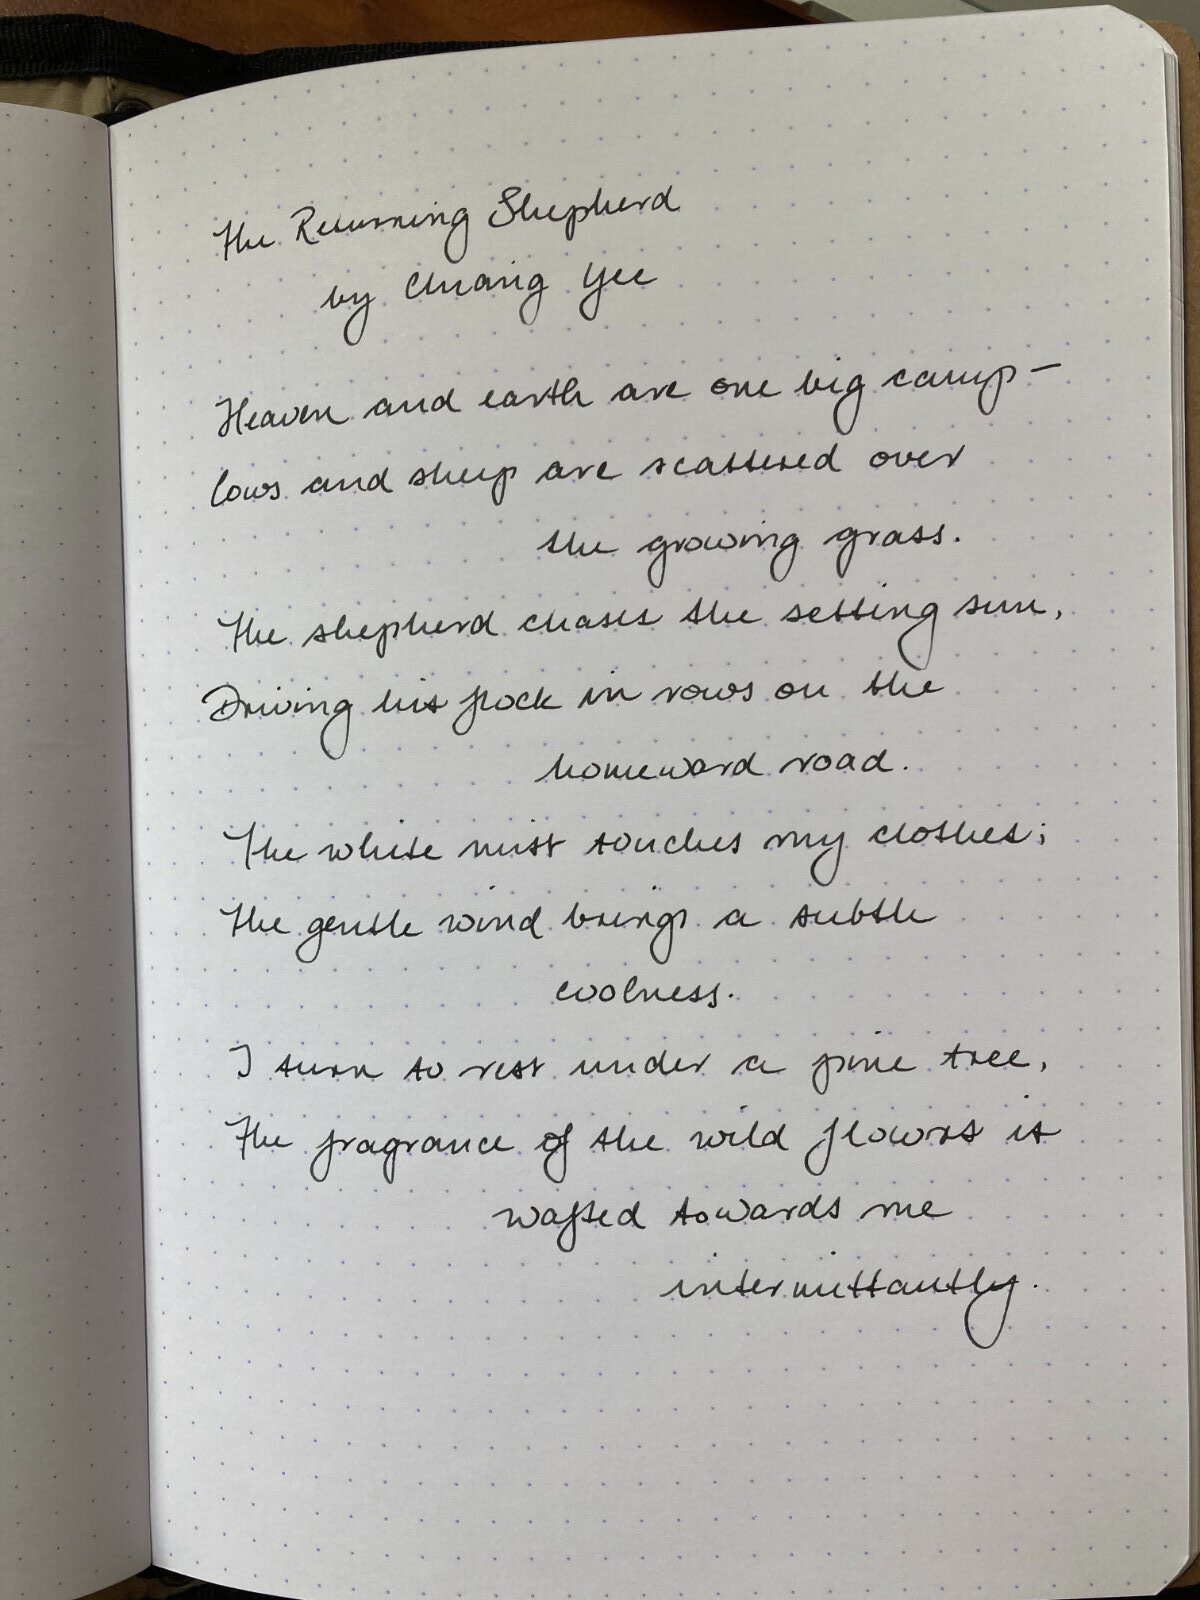 The Returning Shepherd
by Chiang Yee
Heaven and earth are one big camp –
Cows and sheep are scattered over
the growing grass.
The shepherd chases the setting sun,
Driving his flock in rows on the
homeward road.
The white mist touches my clothes;
The gentle wind brings a subtle
coolness.
I turn to rest under a pine tree,
The fragrance of the wild flowers is
wafted towards me
intermittantly.